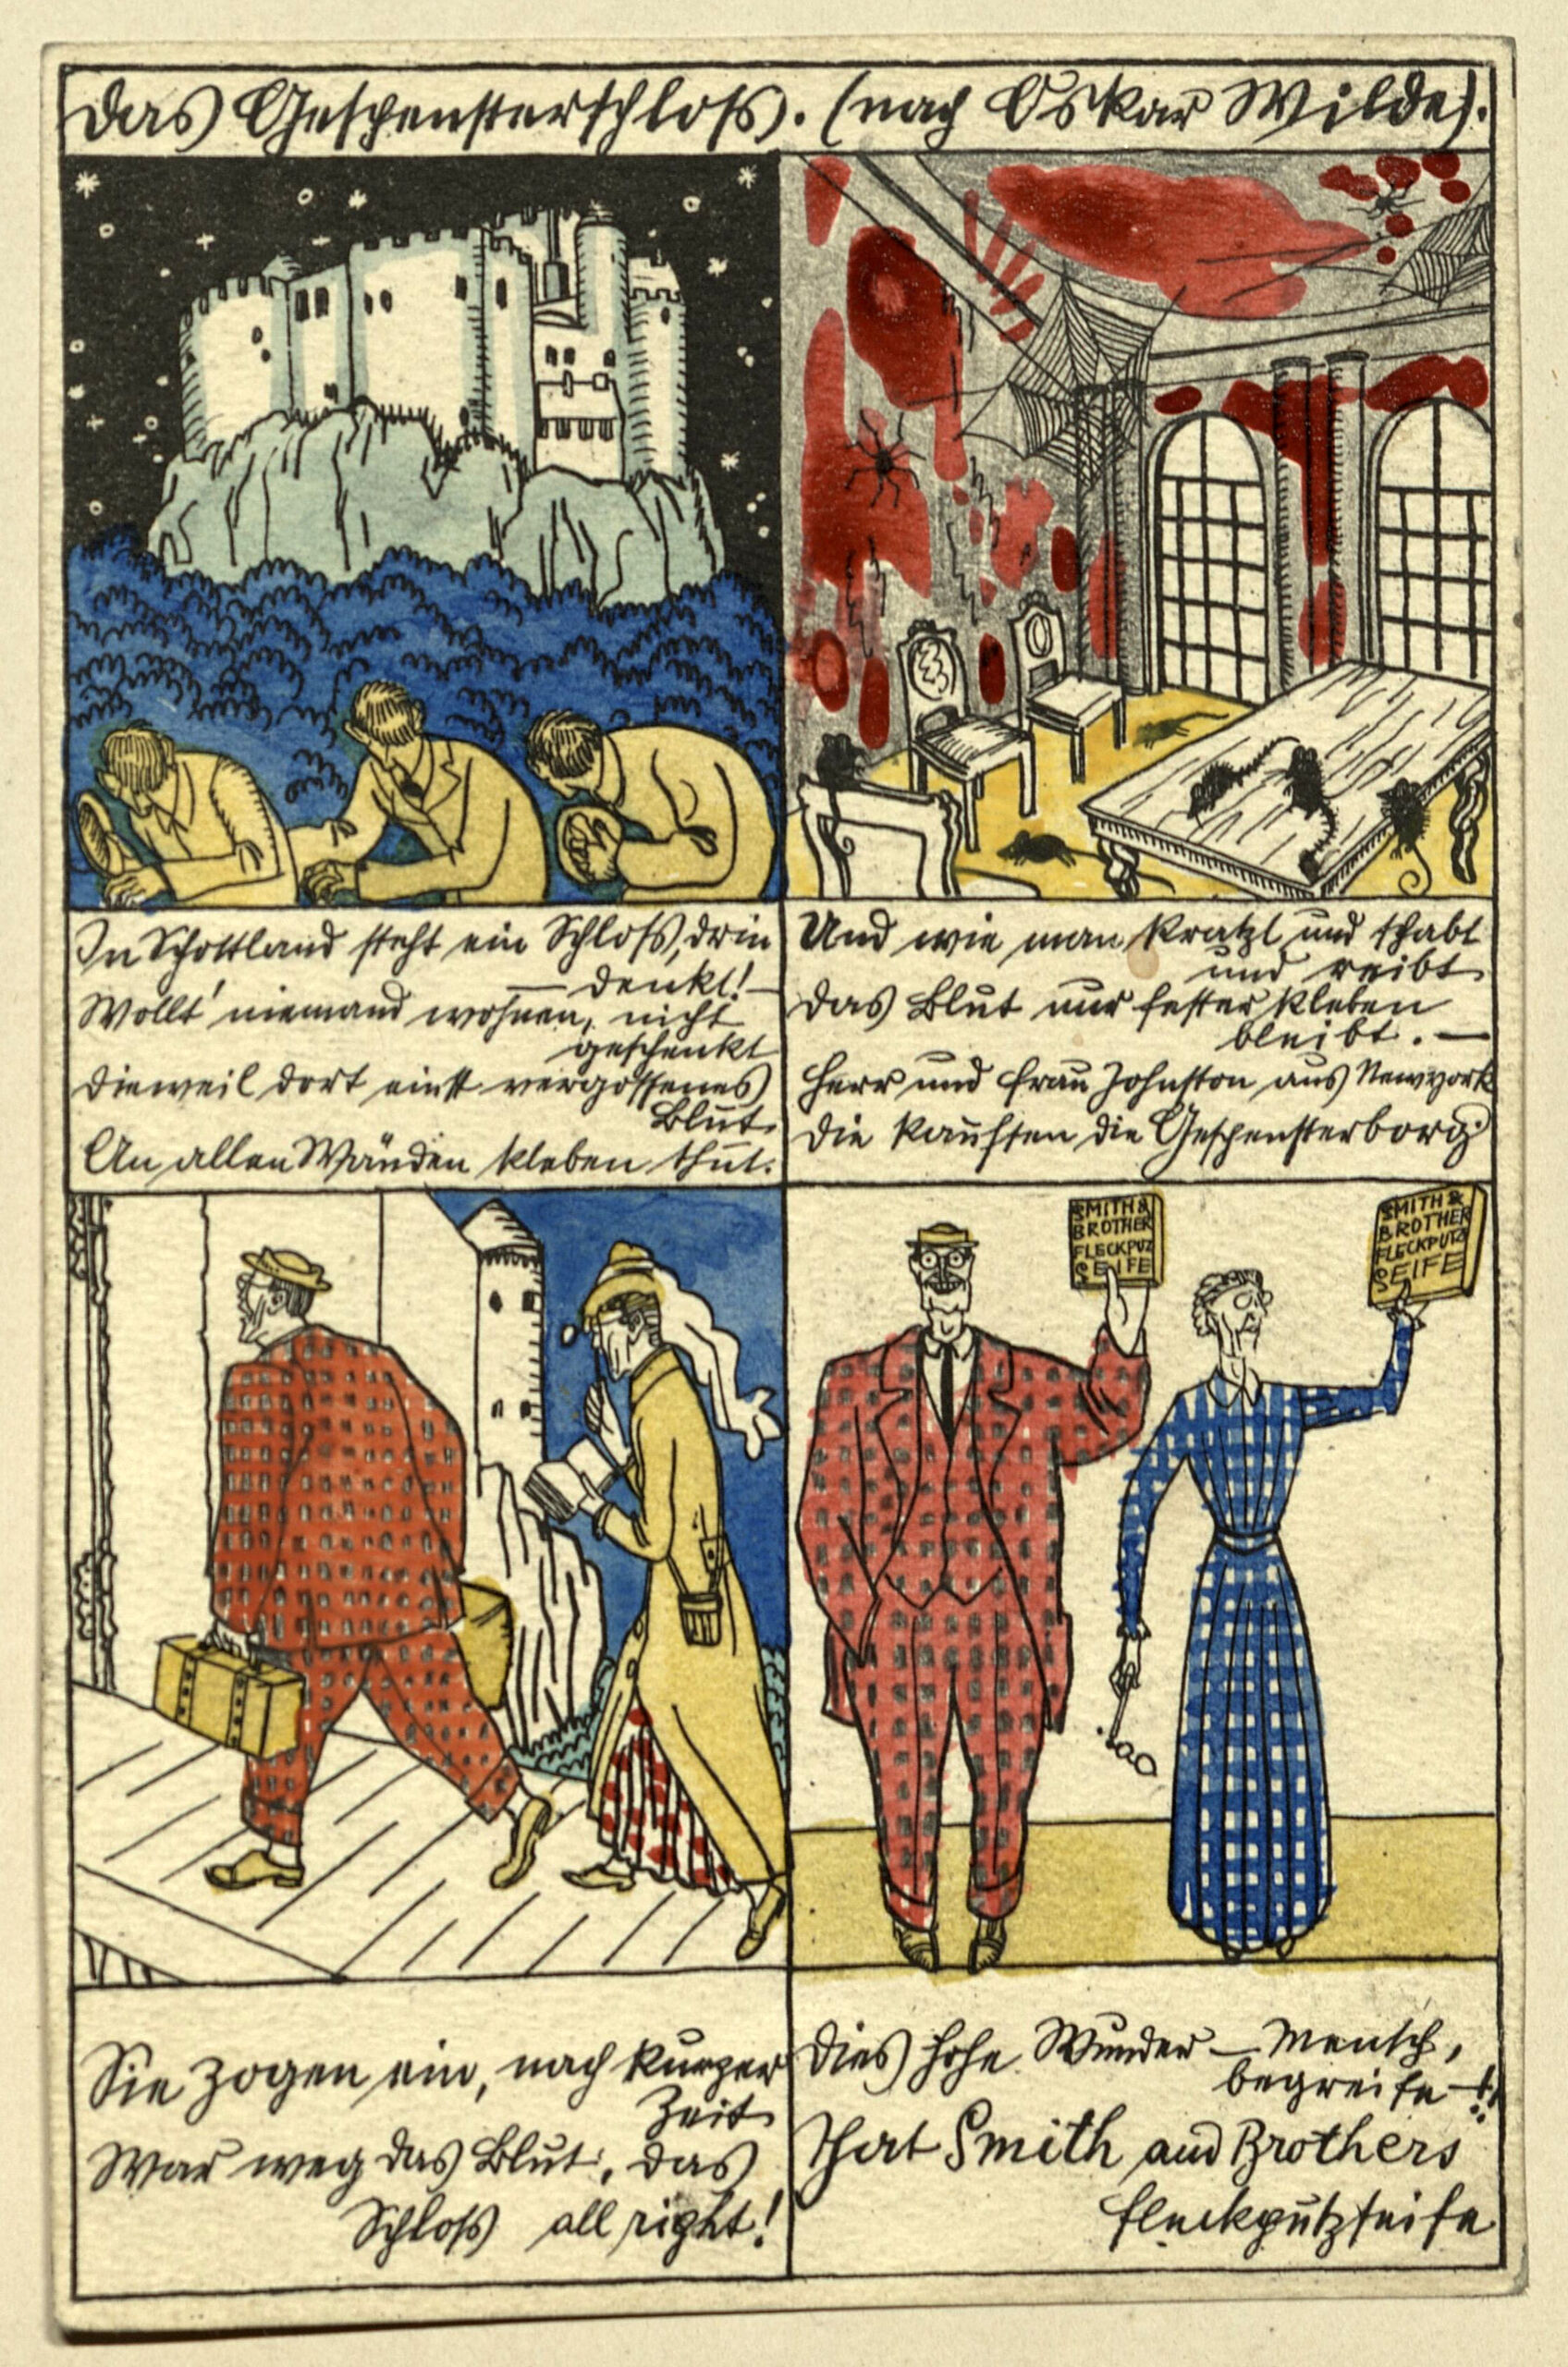 Das Gespensterschloss. (nach Oskar Wilde).
In Schottland steht ein Schloss, drin
denkt! —
Wollt' niemand wohnen, nicht
geschenkt
Dieweil dort einst vergossenes
Blut
An allen Wänden kleben thut.
Und wie man kratzt und schabt
und reibt
Das Blut nur fester kleben
bleibt. —
Herr und Frau Johnston aus Newyork
Die kauften die Gespensterborg.
SMITH &
BROTHER
FLECKPUTZ
SEIFE
SMITH &
BROTHER
FLECKPUTZ
SEIFE
Sie zogen ein, nach kurzer
Zeit
War weg das Blut, das
Schloss all right!
Dies hohe Wunder — Mensch,
begreife —!!
That Smith and Brothers
Fleckputzseife